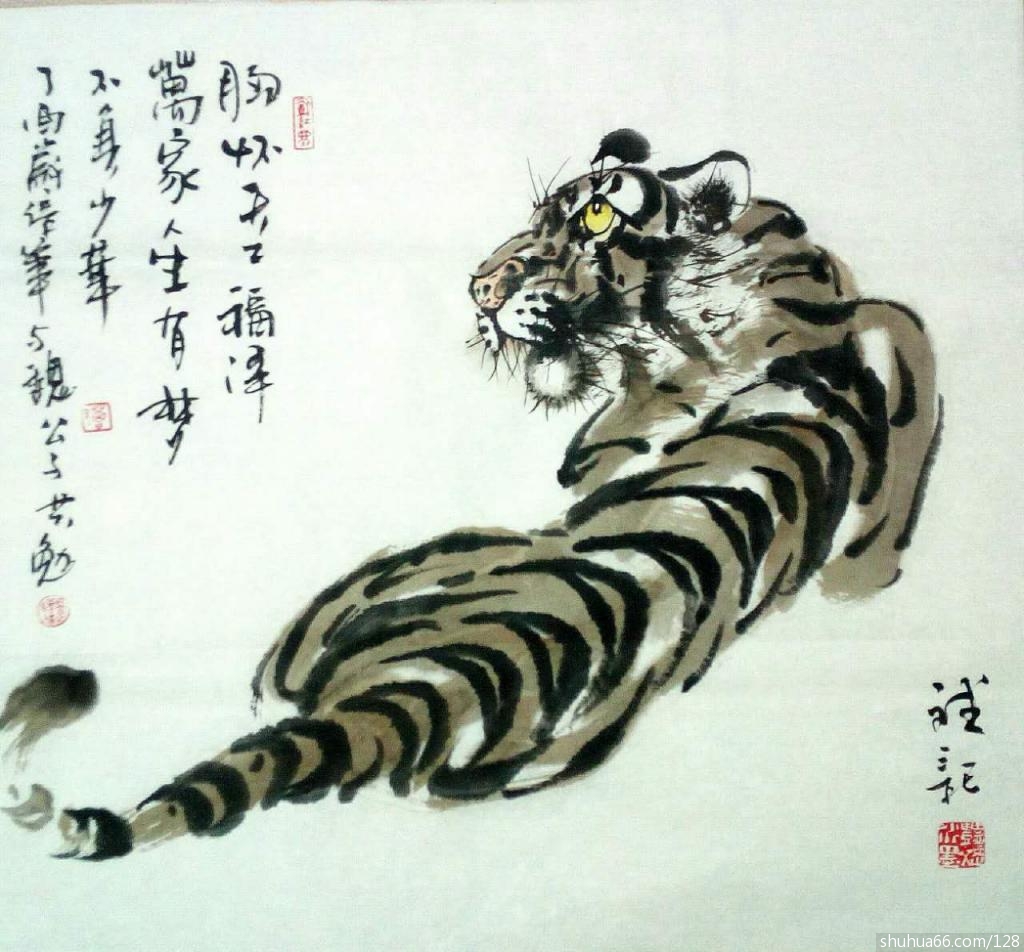 胸怀天下福泽
萬家人生有梦
不負少華
丁酉歲 華与魏公子共勉
記
shuhua66.com/128